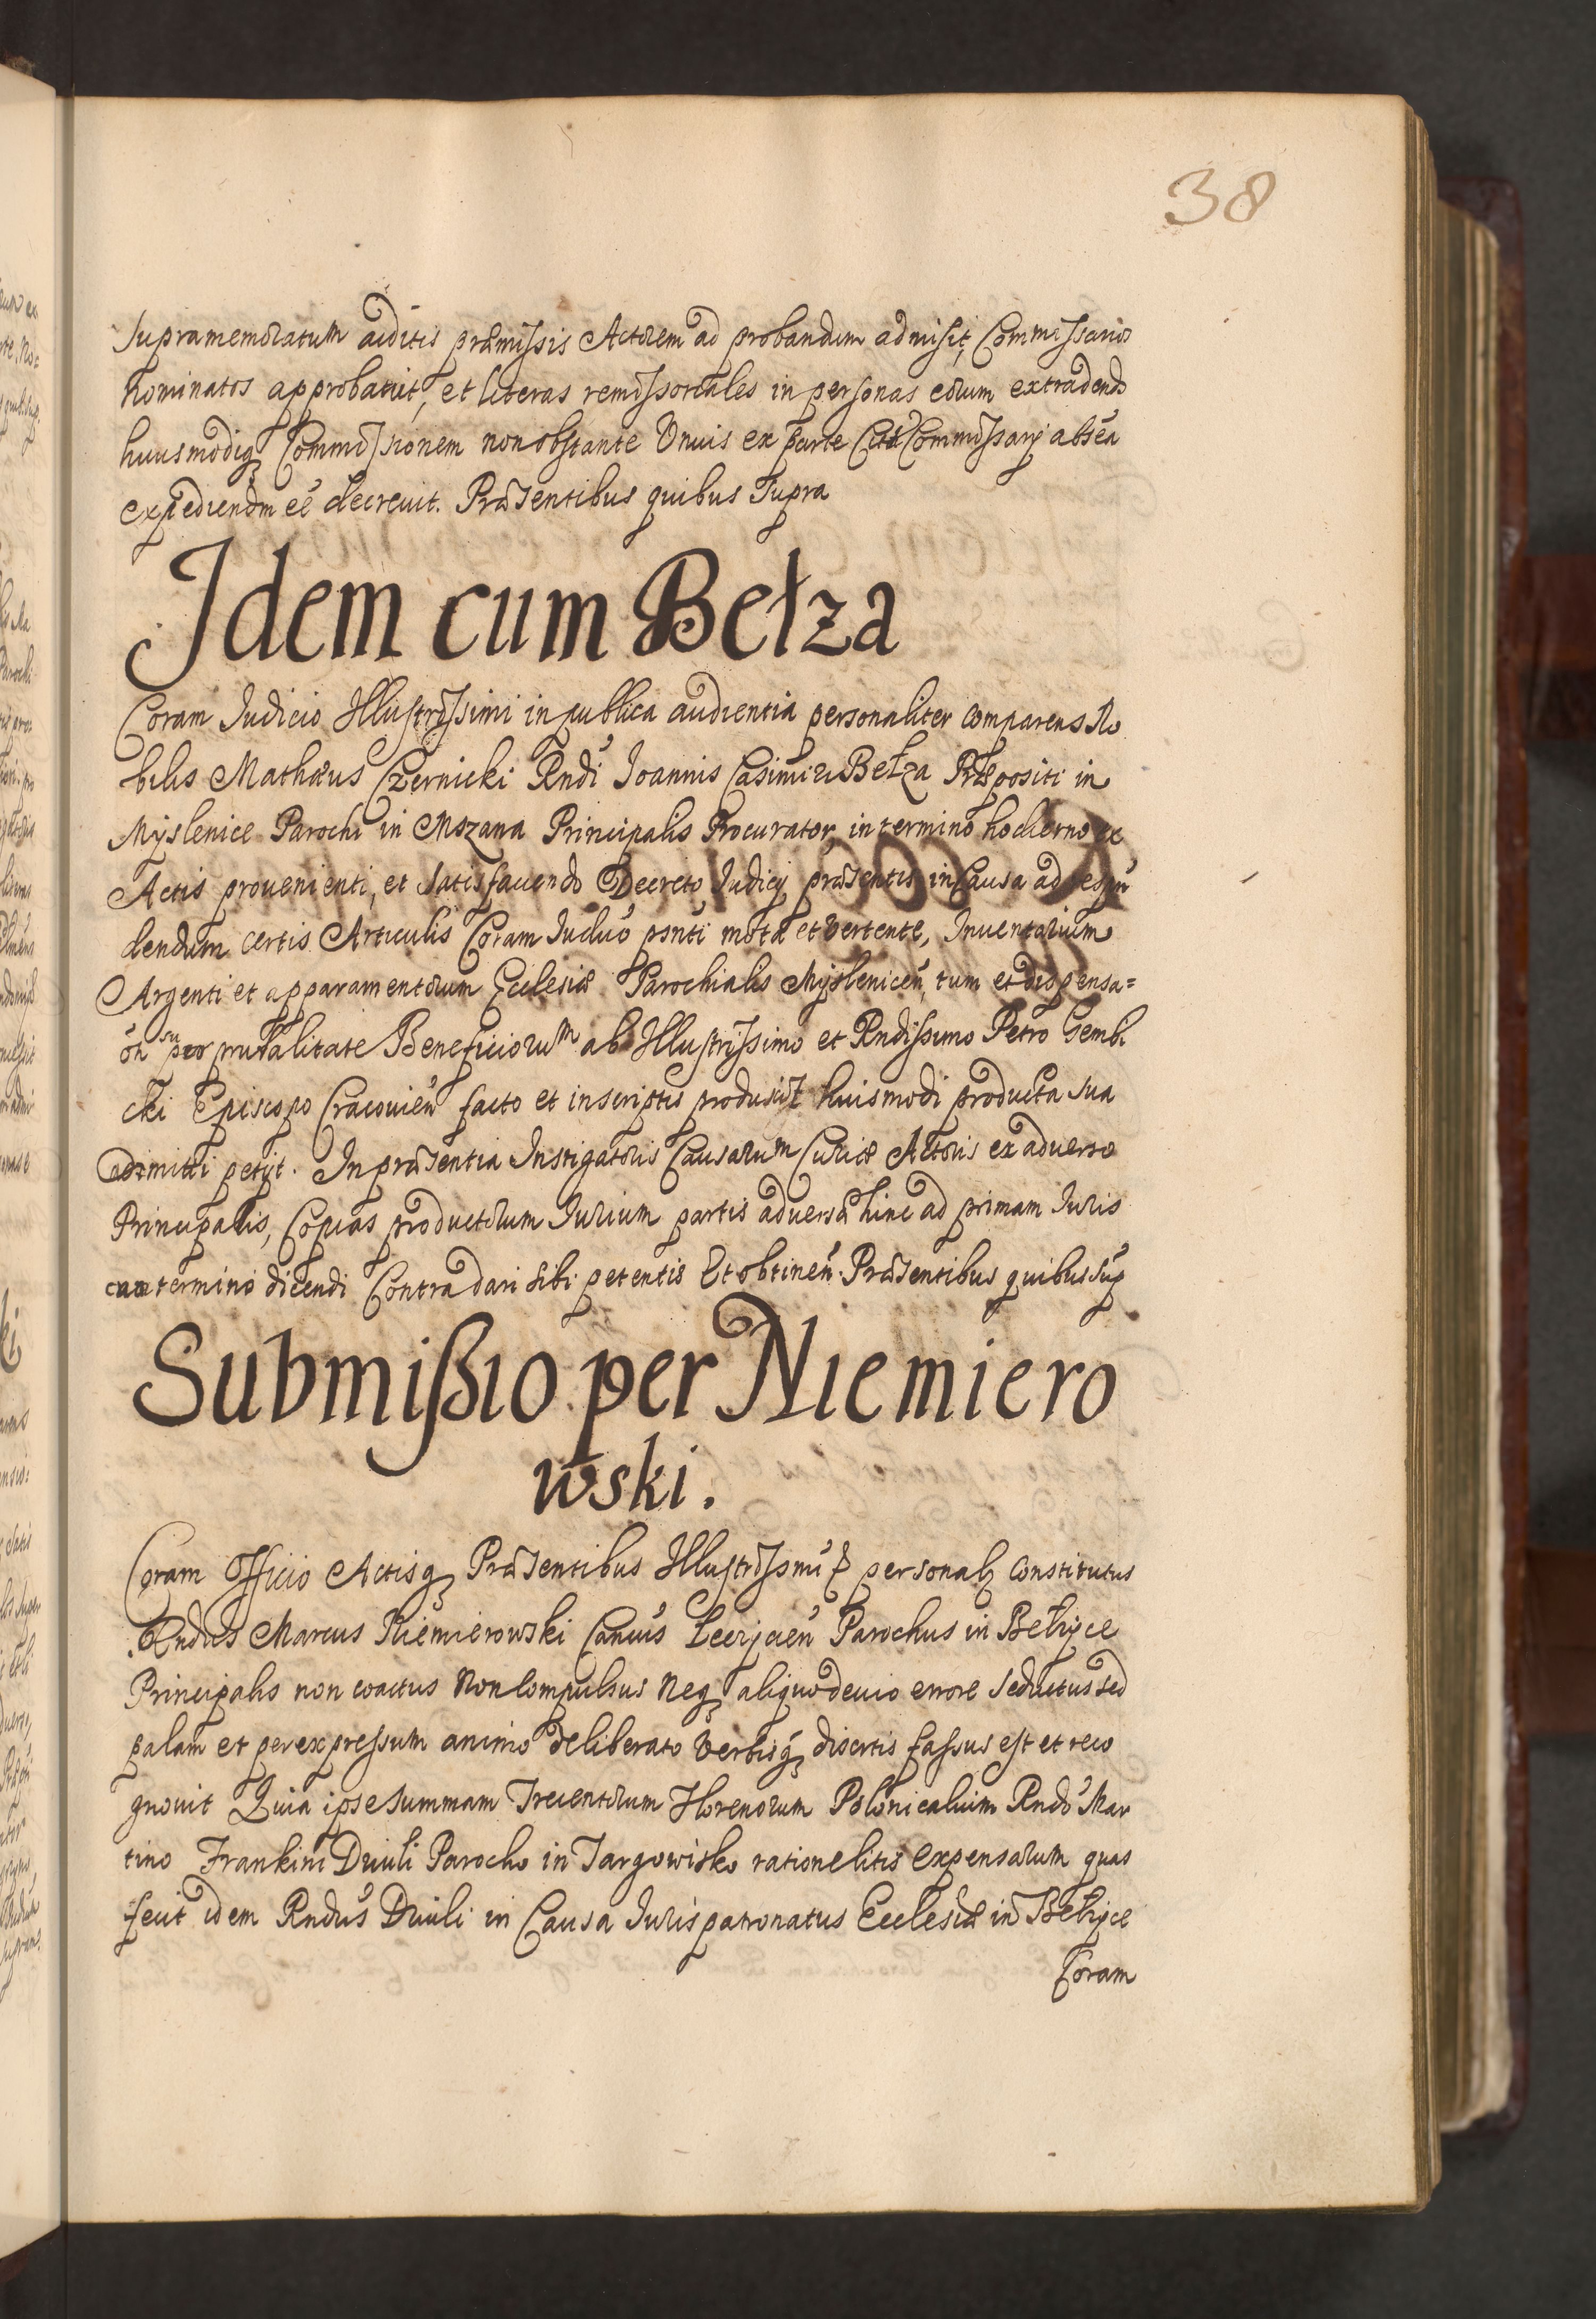 38
supramemoratum auditis præmissis Actorem ad probandum admisit, Commissarios
nominatos approbavit, et literas remissoriales in personas eorum extradendo
huiusmodiq Commissionem non obstante Unius ex parte Commissarij absen
expediendm eē decrevit. Præsentibus quibus Supra
Idem cum Bełza
Coram Iudicio Illustrissimi in publica audientia personaliter comparens No
bilis Mathæus Czernicki Rndi Ioannis Casimiri Bełza Præpositi in
Myslenice Parochi in Mszana Principalis Procurator, in termino hodierno ex
Actis provenienti, et satisfaciendo Decreto Iudicij præsentis in Causa ad respon
dendum certis Articulis Coram Iudicio psnti mota et vertente, Inventarium
Argenti et apparamentorum Ecclesiæ Parochialis Myslenicen, tum et dispensa=
on su per pluralitate Beneficiorum ab Illustrissimo et Rndissimo Petro Gembi
cki Episcopo Cracovien facto et in scriptis produxit huiusmodi producta sua
admitti petijt. In præsentia Instigatoris Causarum Curiæ Actoris ex adverso
Principalis, Copias productorum Iurium partis adversæ hinc ad primam Iuris
termino dicendi Contra dari sibi petentis Et obtinen. Præsentibus quibus sup
Submissio per Niemiero
wski.
Coram Officio Actisq Præsentibus Illustrissmi personalr Constitutus
Rndus Marcus Niemierowski Canous Parochus in Bełzyce
Principalis non coactus non compulsus neq aliquo devio errore seductus sed
palam et per expressum animo deliberato verbisq disertis fassus est et reco
gnovit Quia ipse summam Trecentorum Florenorum Polonicalium Rndo Mar
tino Frankini Diuli Parocho in Targowisko ratione litis expensarum quas
fecit idem Rndus Diuli in Causa Iurispatronatus Ecclesiæ in Bełzyce
Coram